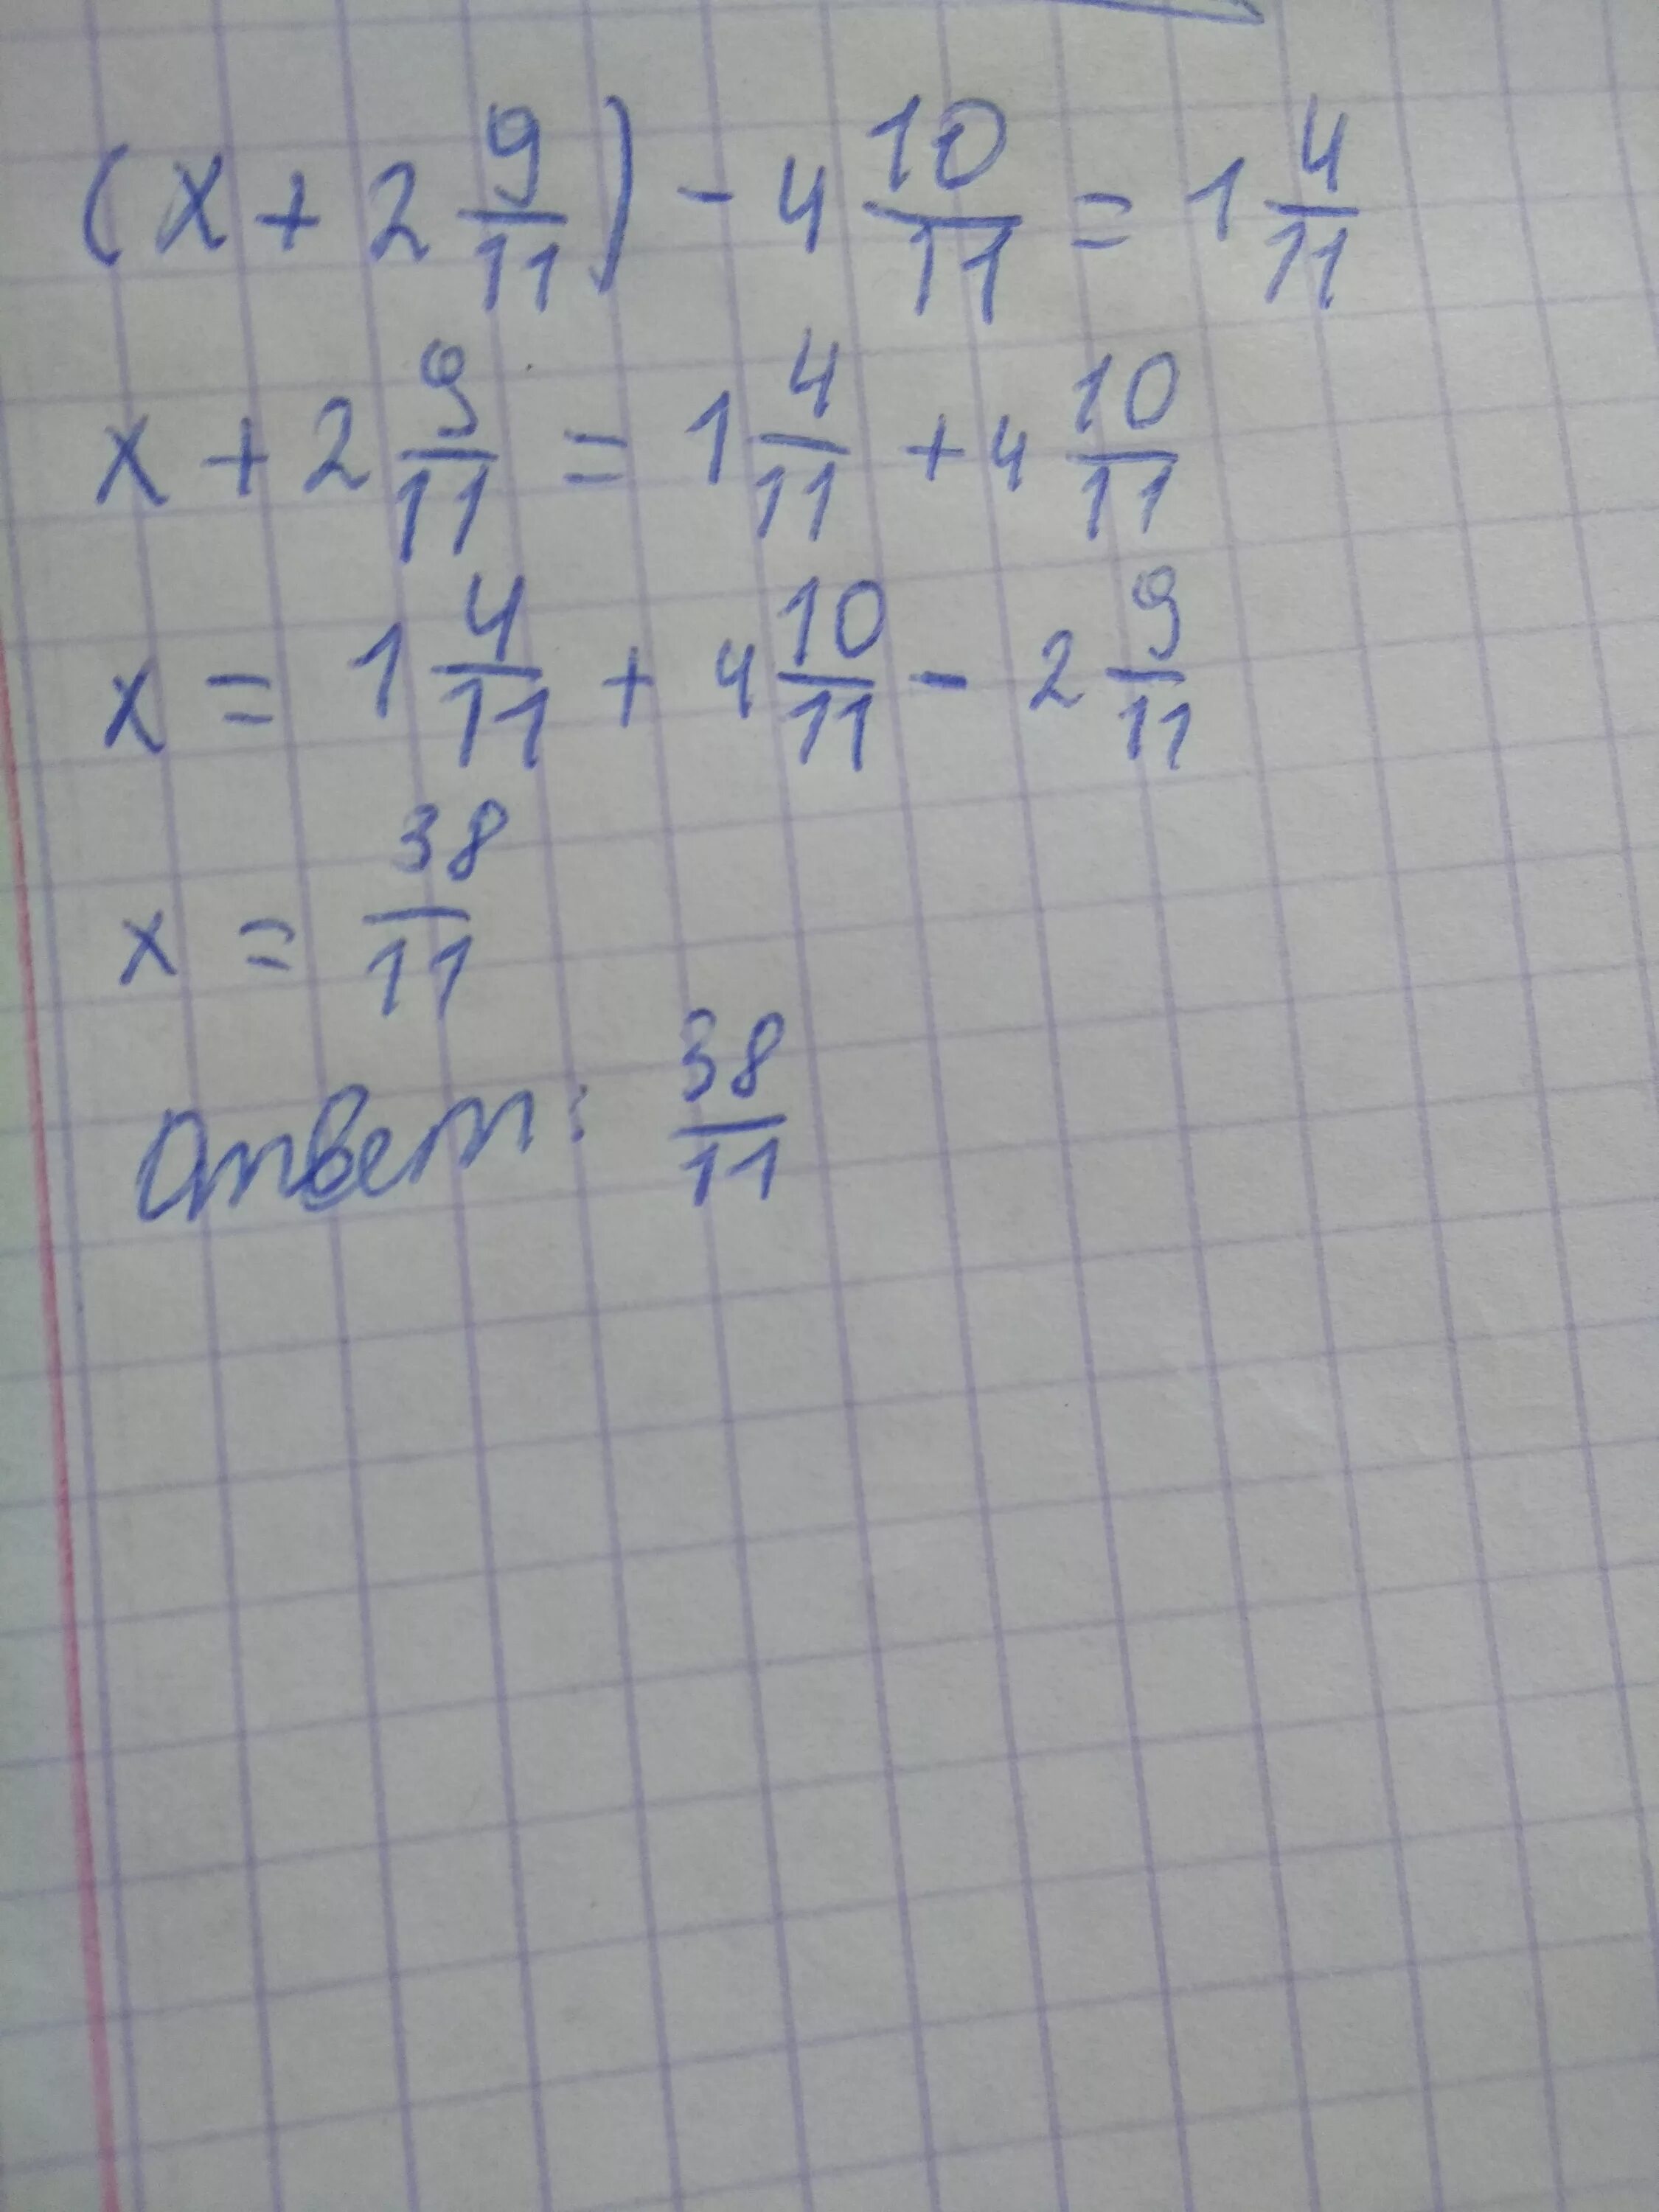 (x + 2 9/11) - 4 10/11 = 1 4/11
x + 2 9/11 = 1 4/11 + 4 10/11
x = 1 4/11 + 4 10/11 - 2 9/11
x = 38/11
Ответ: 38/11